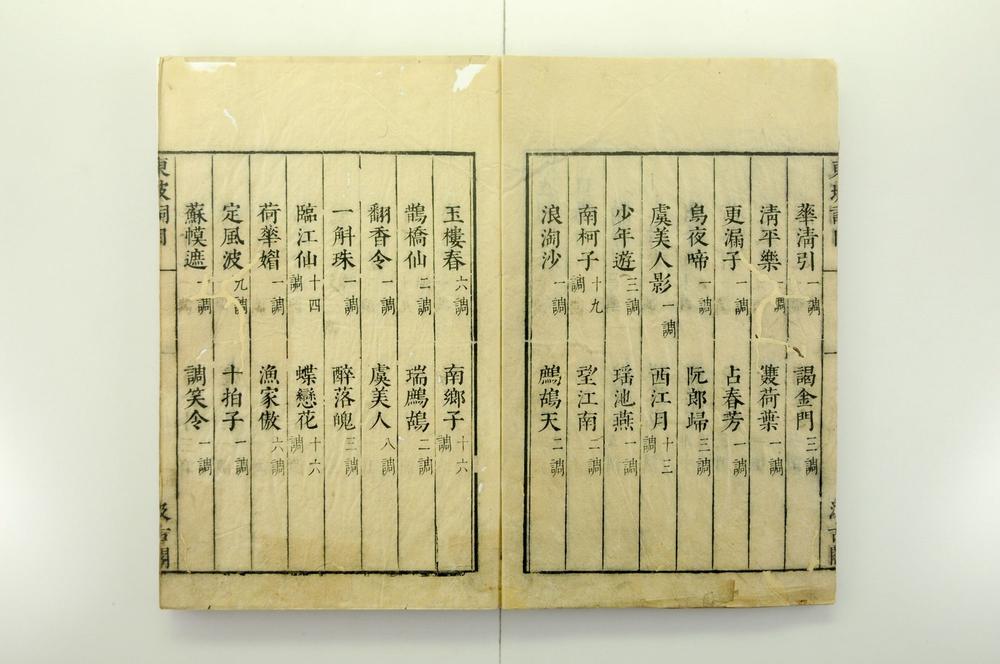 華淸引 一調 謁金門 三調
淸平樂 一調 雙荷葉 一調
更漏子 一調 占春芳 一調
烏夜啼 一調 阮郎歸 三調
虞美人影 一調 西江月 十三調
少年遊 三調 瑤池燕 一調
南柯子 十九調 望江南 二調
浪淘沙 一調 鷓鴣天 二調
玉樓春 六調 南鄉子 十六調
鵲橋仙 二調 瑞鷓鴣 二調
翻香令 一調 虞美人 八調
一斛珠 一調 醉落魄 三調
臨江仙 十四調 蝶戀花 十六調
荷華媚 一調 漁家傲 六調
定風波 九調 十拍子 一調
蘇幙遮 一調 調笑令 一調
東坡詞目
汲古閣